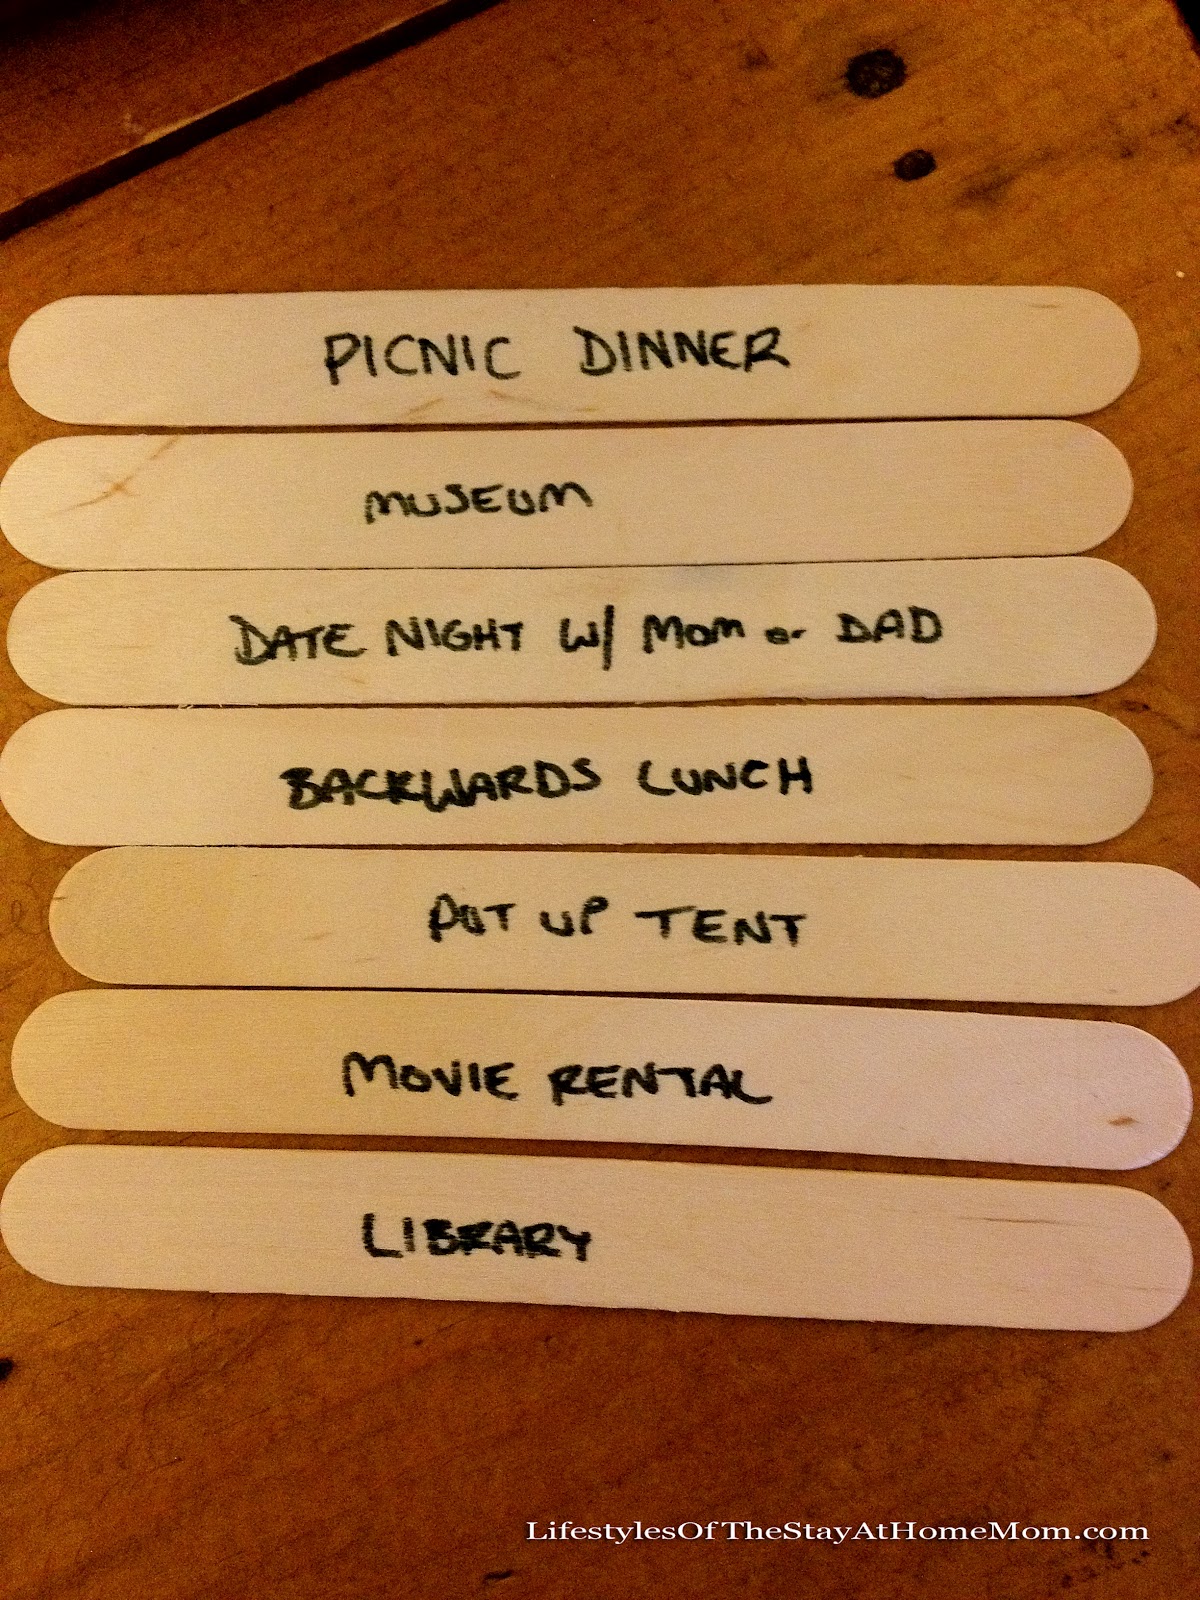 PICNIC DINNER
MUSEUM
DATE NIGHT W/ MOM or DAD
BACKWARDS LUNCH
PUT UP TENT
MOVIE RENTAL
LIBRARY
LifestylesOfTheStayAtHomeMom.com